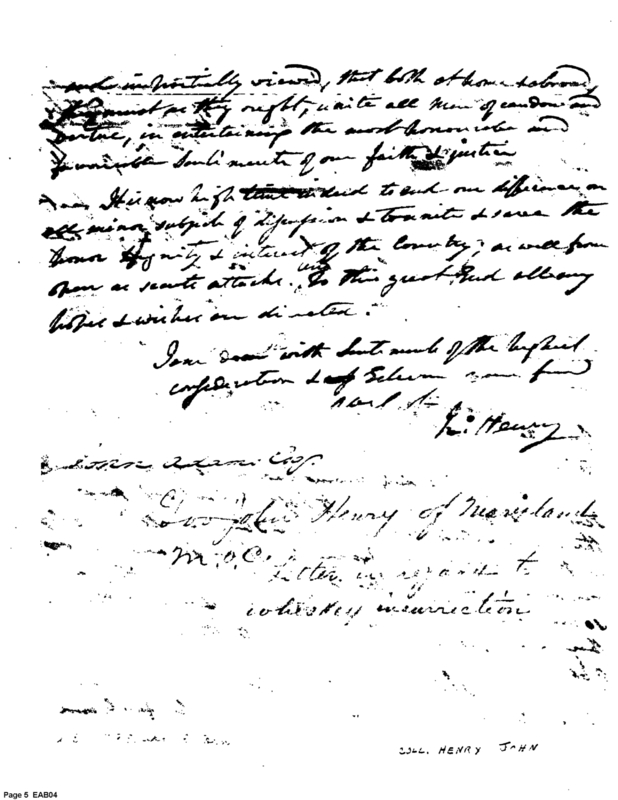 and impartially viewed, that both at home & abroad,
must as they ought, unite all men of candour and
virtue, in entertaining the most honorable and
favorable sentiments of our faith & justice
It is now high time indeed to end our differences on
all minor subjects of discussion & to unite & save the
honor dignity & interest of the Country; as well from
open as secret attacks. To this great End all my
hopes & wishes are directed.
I am dear with Sentiments of the highest
consideration & of Esteem your friend
J: Henry
John Adams Esq.
Gov John Henry of Maryland
M.O.C.
Letter in regard to
whiskey insurrection
COLL. HENRY JOHN
Page 5 EAB04